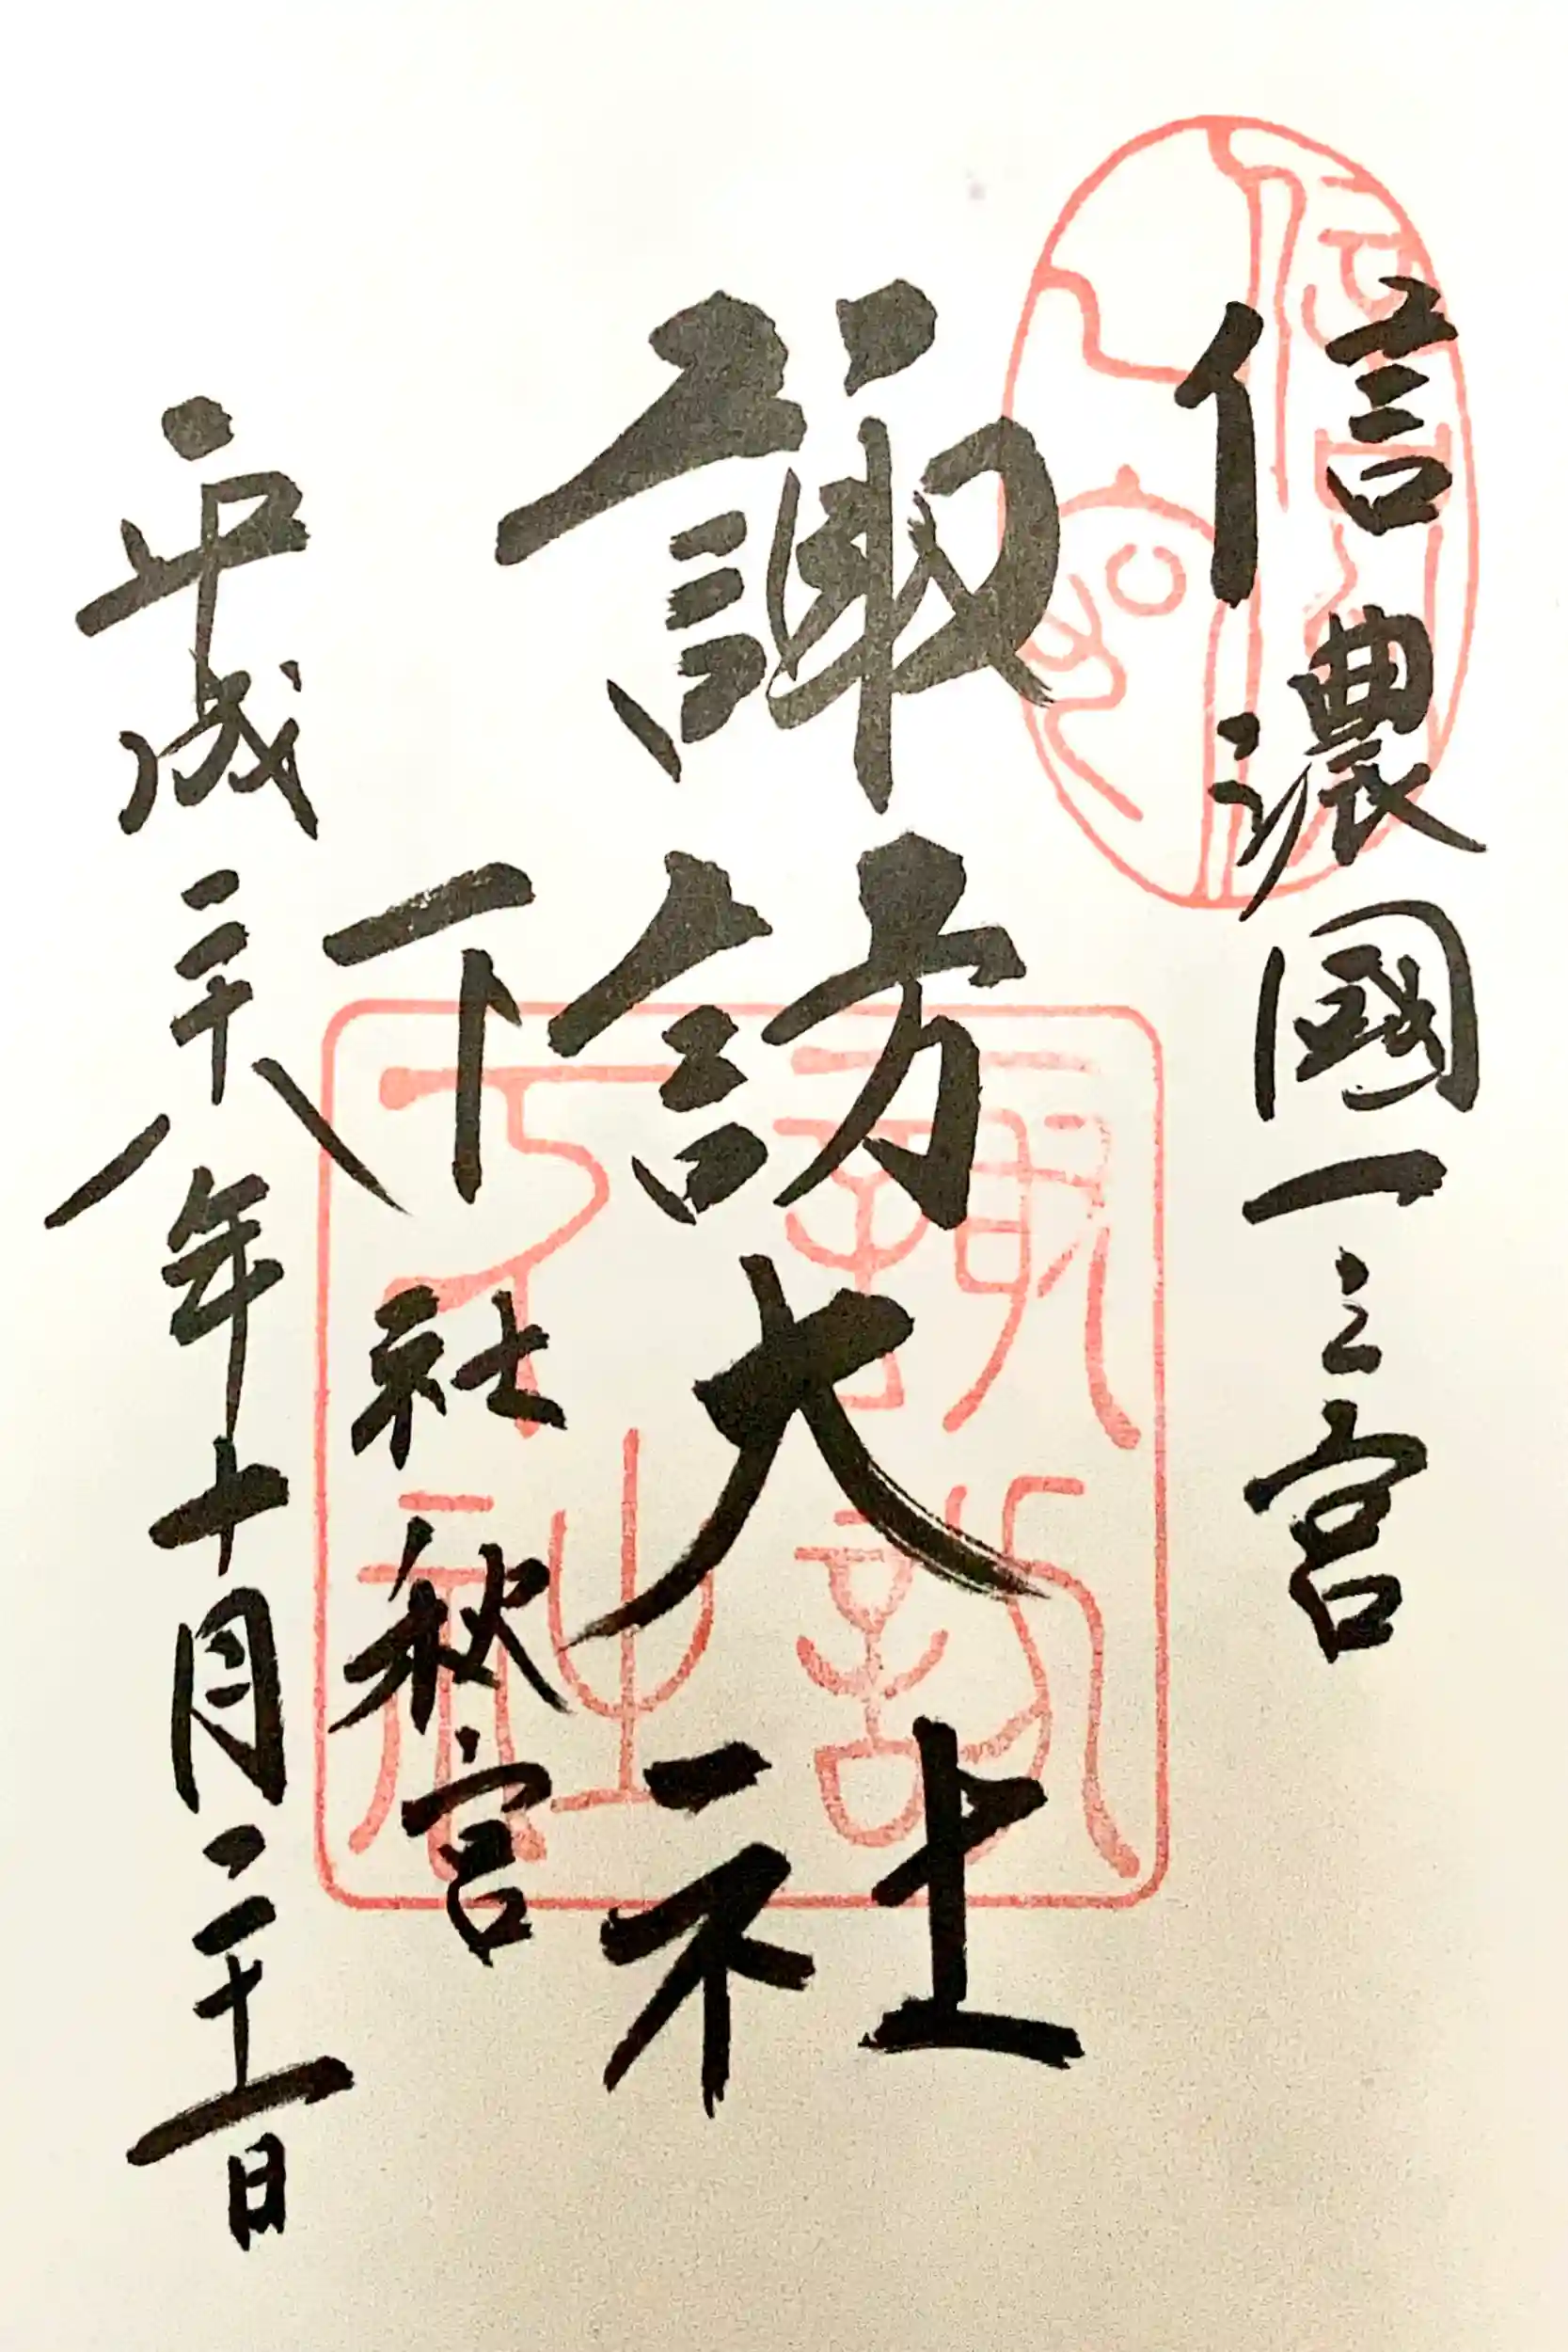 信濃國一之宮
諏訪大社
下社秋宮
平成二十八年十月二十一日
諏訪下社